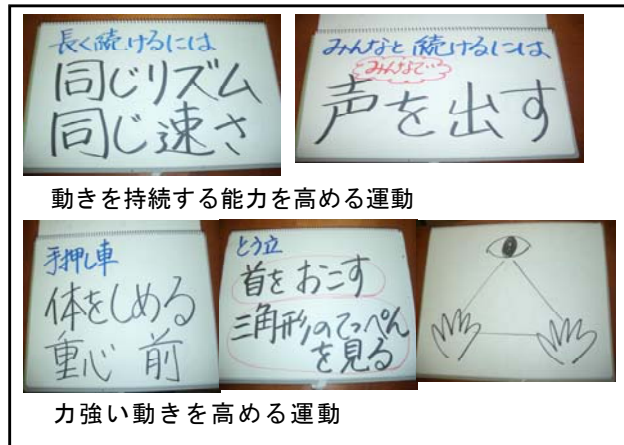 長く続けるには
同じリズム
同じ速さ
みんなと続けるには
みんなで…
声を出す
動きを持続する能力を高める運動
手押し車
体をしめる
重心 前
とう立
首をおこす
三角形のてっぺん
を見る
力強い動きを高める運動